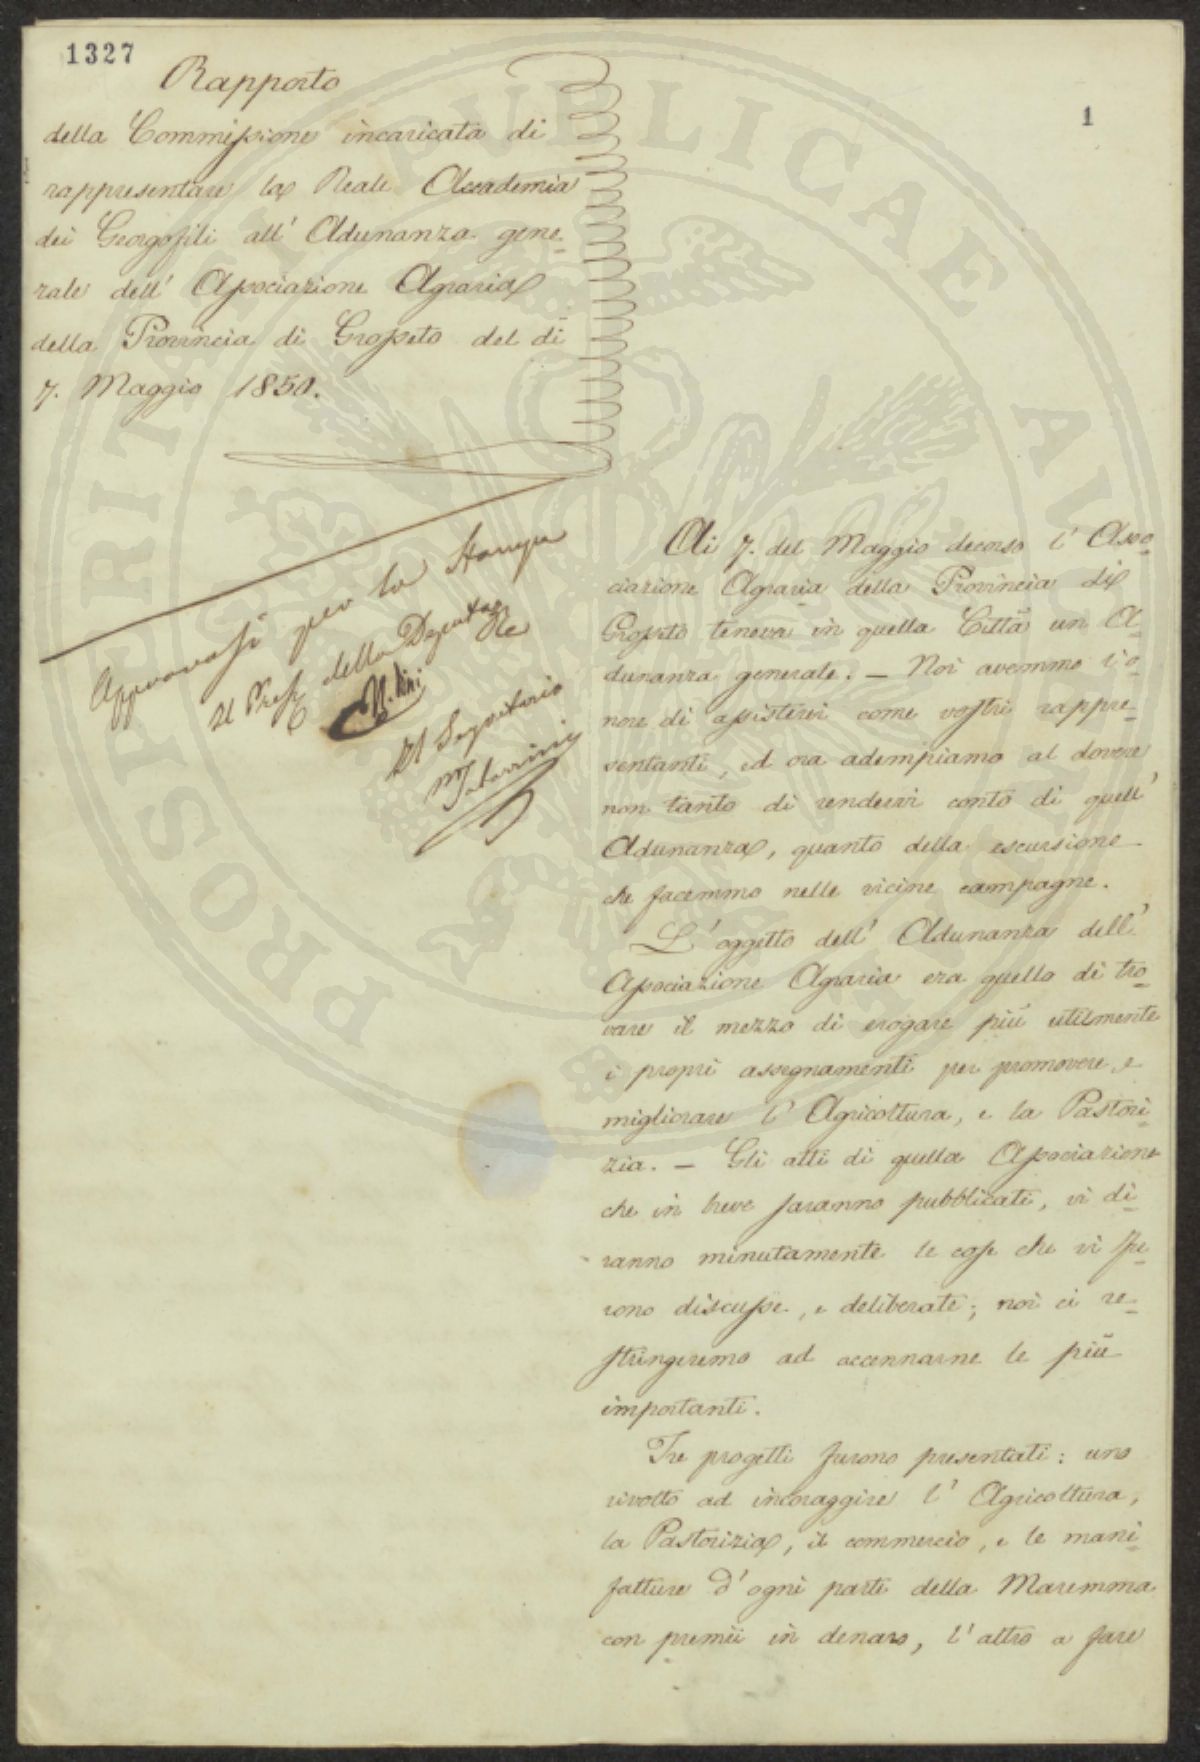 1327
Rapporto
della Commissione incaricata di
rappresentare la Reale Accademia
dei Georgofili all' Adunanza gene=
rale dell' Associazione Agraria
della Provincia di Grosseto del di
7. Maggio 1850.
Approvasi per la Stampa
Il Pres. della Deputaz
Il Segretario
M Tabarrini
1
Ai 7. del Maggio decorso l' Asso=
ciazione Agraria della Provincia di
Grosseto teneva in quella Città un A=
dunanza generale. — Noi avemmo l'o=
nore di assistervi come vostri rappre=
sentanti, ed ora adempiamo al dovere
non tanto di rendervi conto di quell'
Adunanza, quanto della escursione
che facemmo nelle vicine campagne.
L' oggetto dell' Adunanza dell'
Associazione Agraria era quello di tro=
vare il mezzo di erogare più utilmente
i propri assegnamenti per promovere, e
migliorare l' Agricoltura, e la Pastori=
zia. — Gli atti di quella Associazione
che in breve saranno pubblicati, vi di=
ranno minutamente le cose che vi fu=
rono discusse, e deliberate; noi ci re=
stringeremo ad accennarne le più
importanti.
Tre progetti furono presentati: uno
rivolto ad incoraggire l' Agricoltura,
la Pastorizia, il commercio, e le mani=
fatture d' ogni parte della Maremma
con premii in denaro, l' altro a fare
PROSPERITATI PUBLICAE AUGENDAE